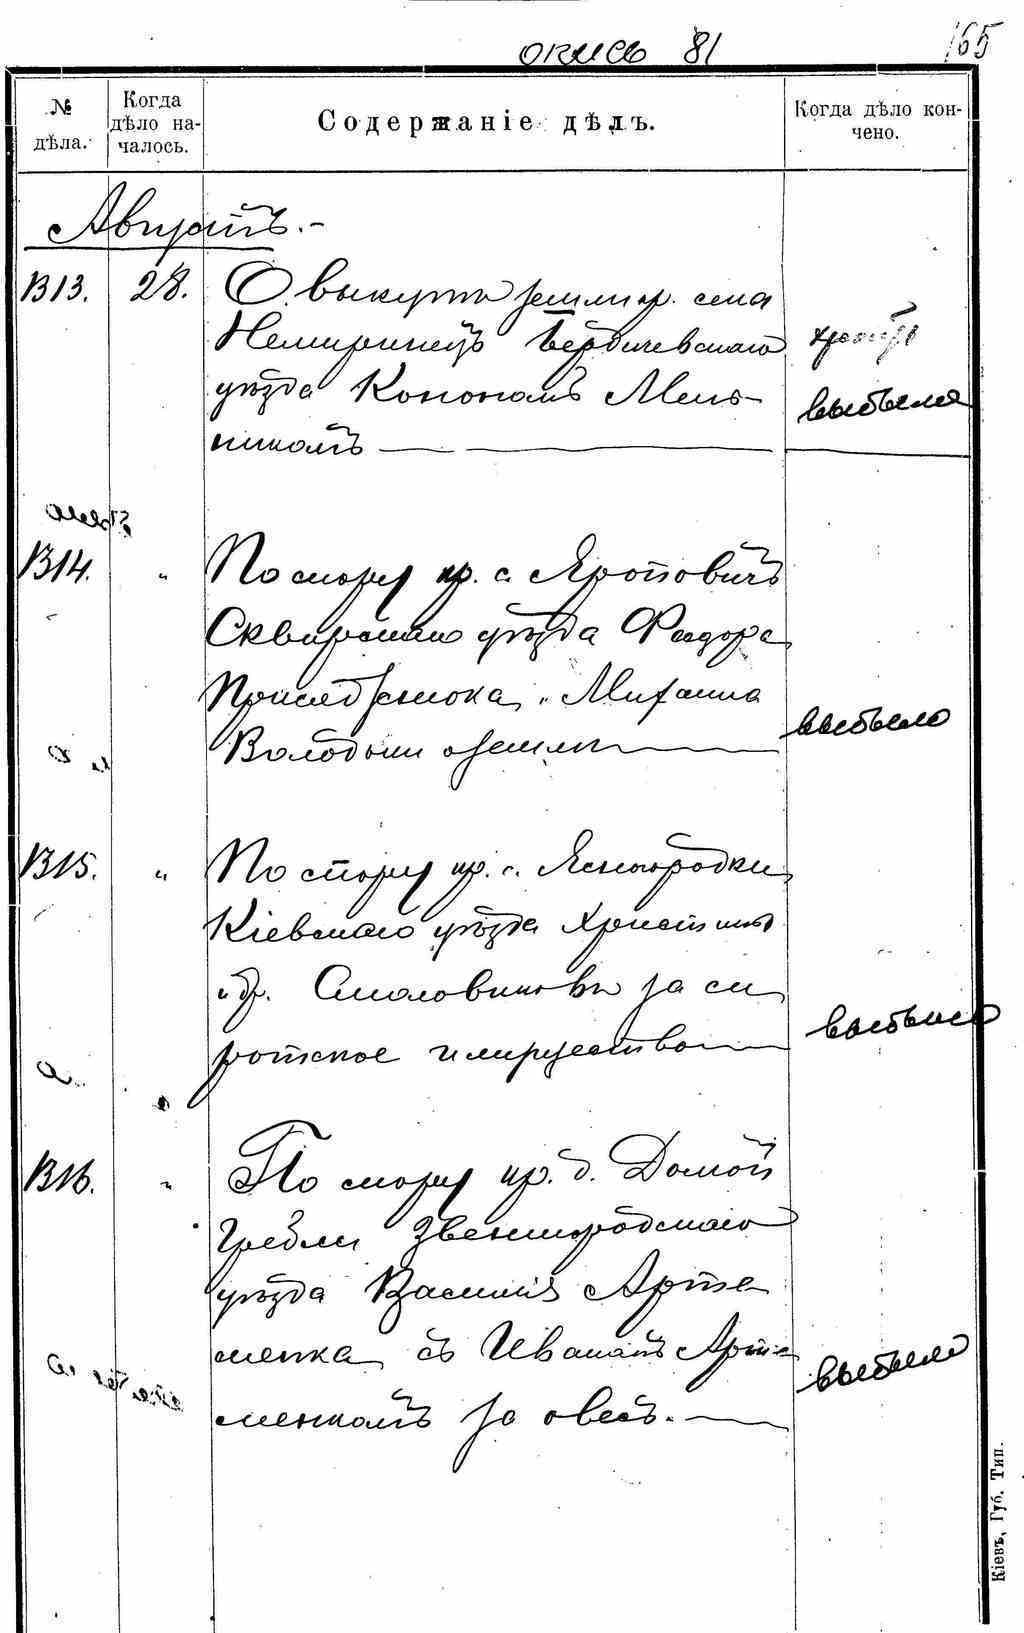 опись 81
165
№ дѣла.
Когда дѣло началось.
Содержаніе дѣлъ.
Когда дѣло кончено.
Августъ.-
813. 28. О выкупѣ земли кр. села
Немиринецъ Бердичевскаго
уѣзда Конономъ Мель-
никомъ
выбыло
814. " По спору кр. с. Яроповичъ
Сквирскаго уѣзда Федора
Михаила
Володьки о земли
выбыло
815. " По спору кр. с. Ясногородки
Кіевскаго уѣзда Христины
и др. за си
ротское имущество
выбыло
816. " По спору кр. д.
Гребли Звенигородскаго
уѣзда Василія Арте
менка съ Иваномъ Арте
менкомъ за овесъ.
выбыло
Кіевъ, Губ. Тип.